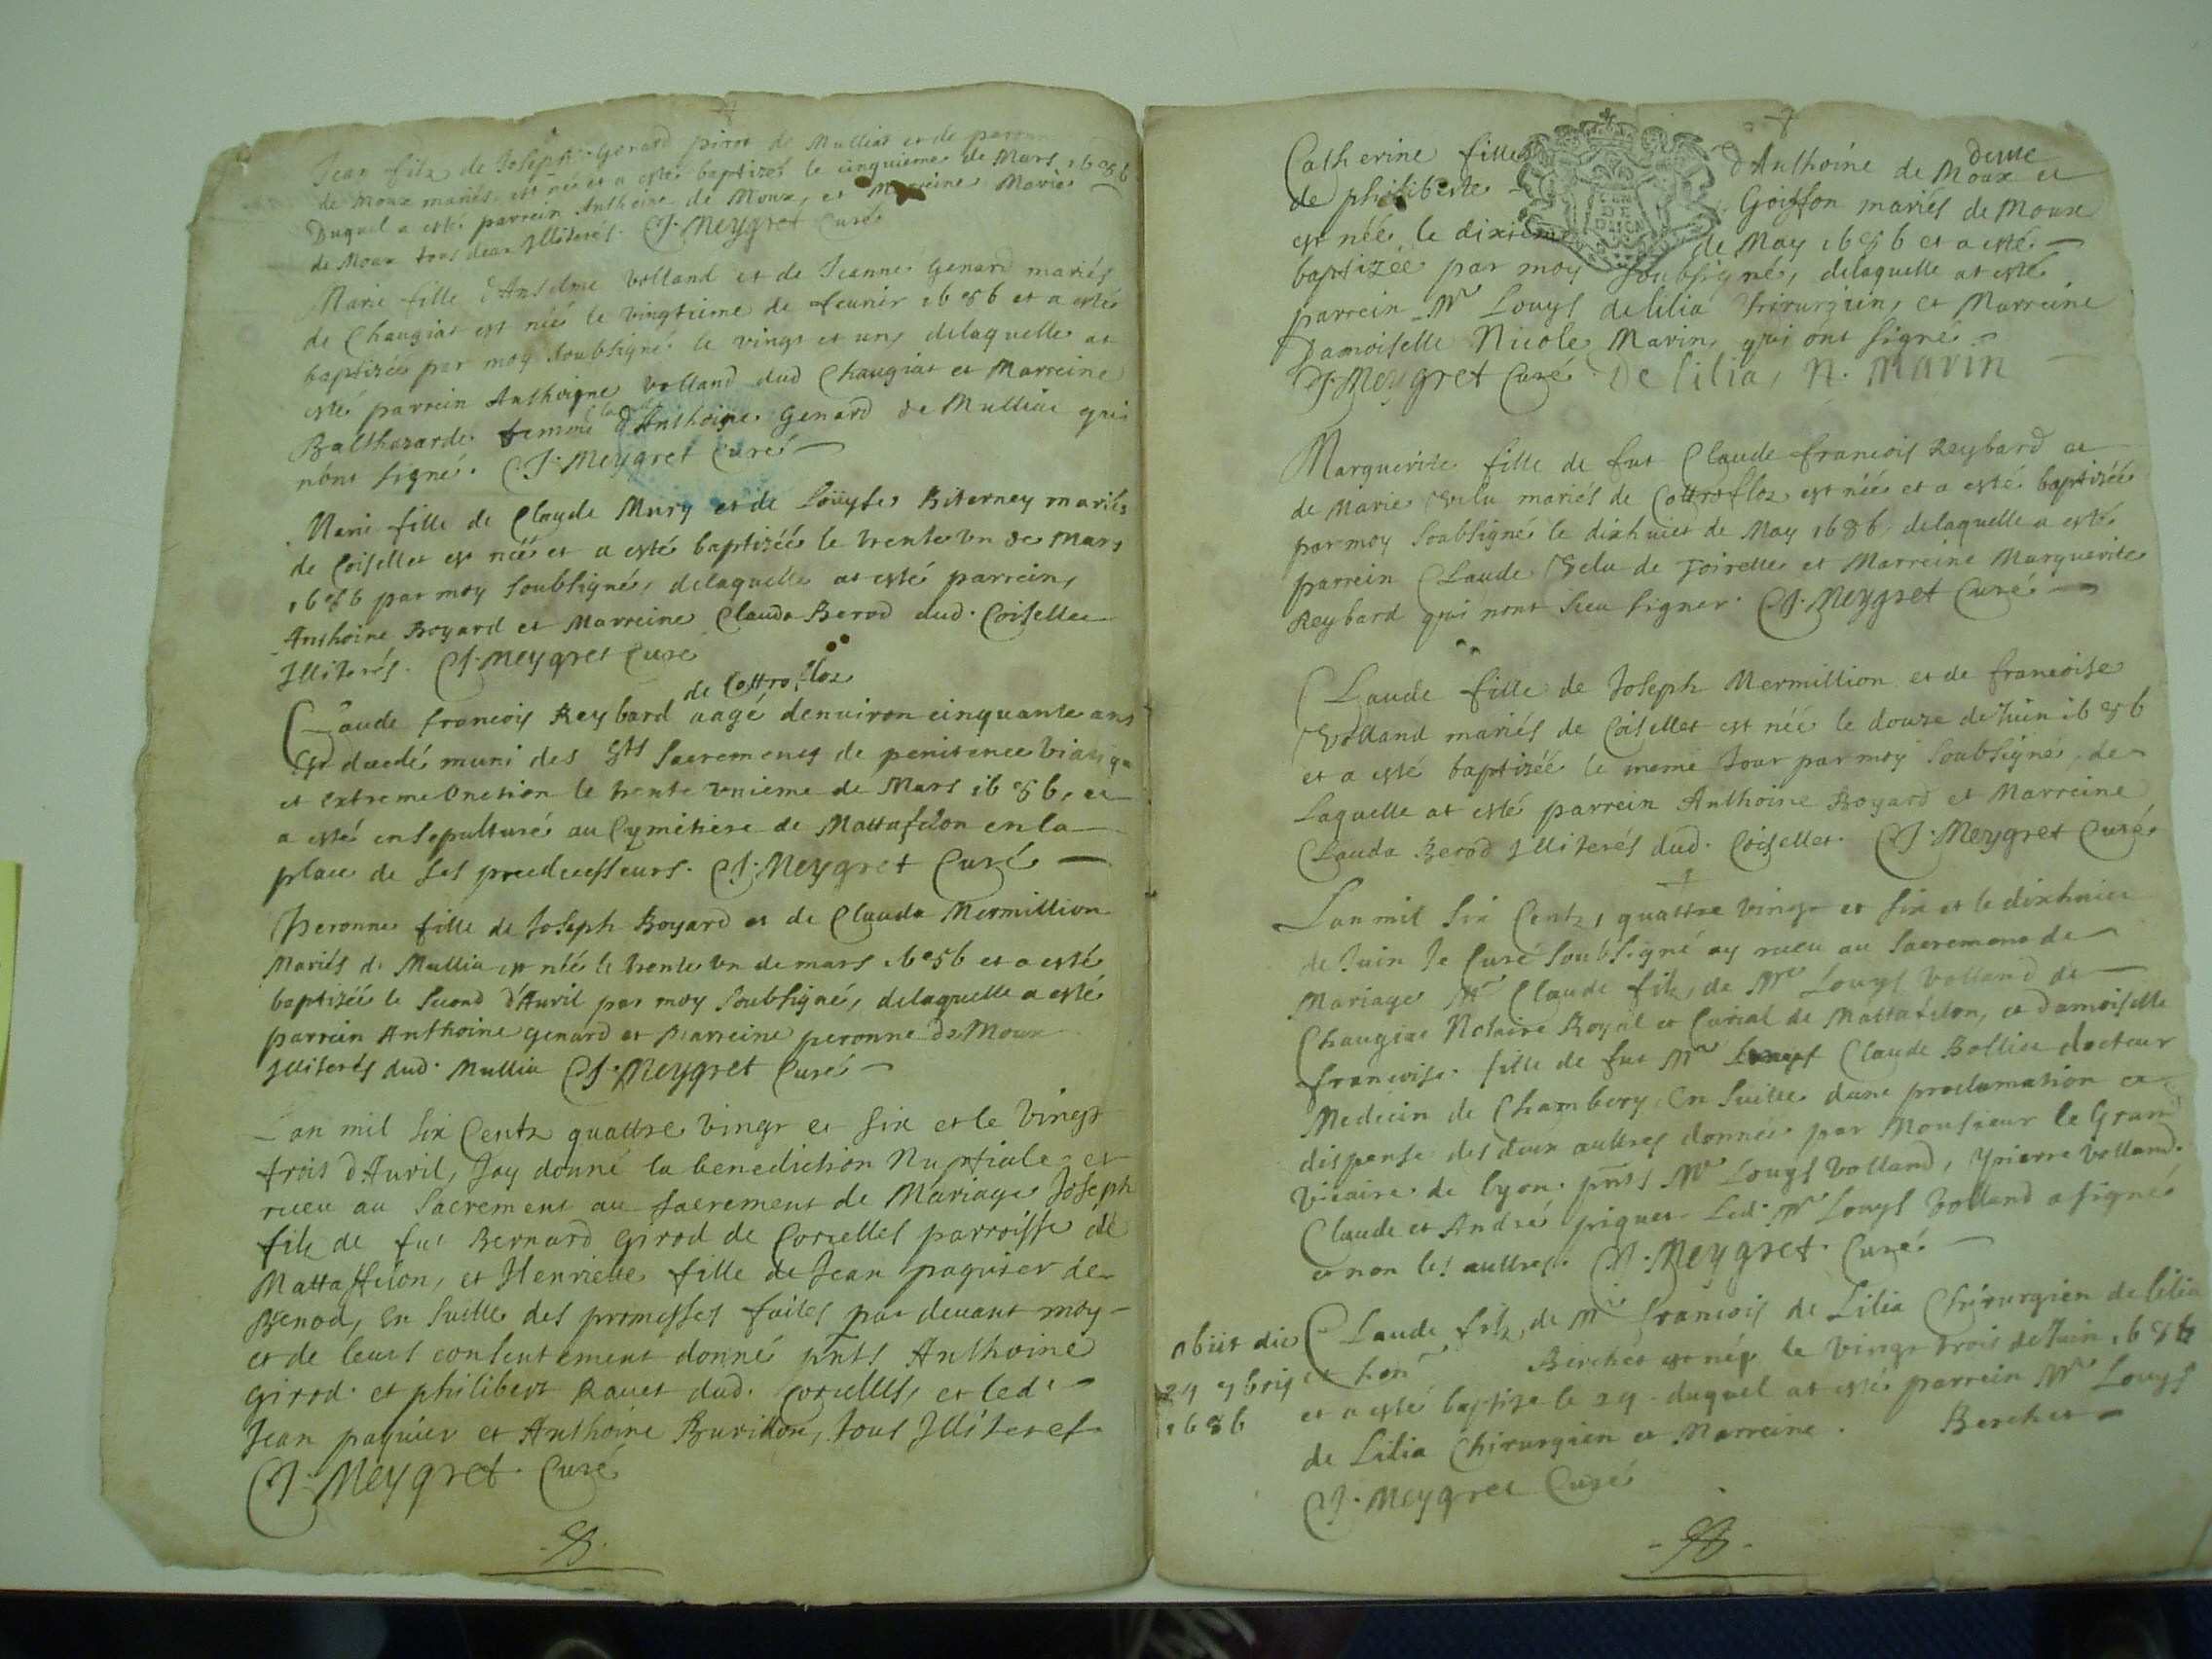 Jean filz de Joseph Genard piroz de Mulliat et de peronne
de Moux mariés est né et a esté baptizé le cinquieme de Mars 1686
Duquel a esté parrein Anthoine de Moux, et Marreine Marie
de Moux tous deux Jlliterés. CJ. Meygret Curé
Marie fille d'Anselme Volland et de Jeanne Genard mariés
de Chaugiat est née le vingtieme de feurier 1686 et a estée
baptizée par moy soubsigné le vingt et un, delaquelle at
esté parrein Anthoigne Volland dud Chaugiat et Marreine
Balthazarde femme d'Anthoine Genard de Mulliat qui
nont signé. CJ. Meygret Curé
Marie fille de Claude Mury et de Loüyse Biterney mariés
de Coisellet est née et a esté baptizéé le trente un de Mars
1686 par moy soubsigné, delaquelle at esté parrein,
Anthoine Boyard et Marreine Clauda Berod dud. Coisellet
Jlliterés. CJ. Meygret Curé
de Cottrofloz
Claude francois Reybard aagé denuiron cinquante ans
Est decedé muni des Sts Sacrements de penitence viatiqu
et extreme Onction le trente unieme de Mars 1686, et
a esté ensepulturé au Cymetiere de Mattafelon en la
place de ses predecesseurs. CJ. Meygret Curé
Peronne fille de Joseph Boyard et de Clauda Mermillion
Mariés de Mullia est née le trente un de mars 1686 et a esté
baptizéé le second d'Auril par moy soubsigné, delaquelle a esté
parrein Anthoine Genard et Marreine peronne de Moux
Jlliterés dud. Mullia CJ. Meygret Curé
Lan mil six Centz quattre vingt et six et le vingt
trois d'Auril, Jay donné la benediction Nuptiale et
receu au Sacrement au sacrement de Mariage Joseph
filz de fut Bernard Girod de Corcelles parroisse de
Mattaffelon, et Henriette fille de Jean paquier de
Benod, En suitte des promesses faites par deuant moy
et de leurs consentement donné pnts Anthoine
Girod et philibert Rauet dud. Corcelles, et led.
Jean paquier et Anthoine Buridon, tous Jlliteres
CJ. Meygret Curé
Catherine fille d'Anthoine de Moux et
de philiberte Goiffon mariés de Moux
est née le dixieme de May 1686 et a esté
baptizéé par moy soubsigné, delaquelle at esté
parrein Mr Louys delilia Chirurgien, et Marreine
Damoiselle Nicole Marin, qui ont signé
CJ. Meygret Curé De lilia, N. Marin
Marguerite fille de fut Claude francois Reybard et
de Marie Velu mariés de Cottrofloz est née et a esté baptizéé
par moy soubsigné le dixhuict de May 1686 delaquelle a esté
parrein Claude Velu de Toirette et Marreine Marguerite
Reybard qui nont sceu signer. CJ. Meygret Curé
Claude fille de Joseph Mermillion et de francoise
Volland mariés de Coisellet est néé le douze de Juin 1686
et a esté baptizéé le meme Jour par moy soubsigné, de
Laquelle at esté parrein Anthoine Boyard et Marreine
Clauda Berod Jlliterés dud. Coisellet. CJ. Meygret Curé
Lan mil six Centz, quattre vingt et six et le dixhuict
de Juin Je Curé soubsigné ay receu au Sacrement de
Mariage Mr Claude filz de Mre Louys Volland de
Chaugiat Notaire Royal et Curial de Mattafelon, et damoiselle
francoise fille de fut Mre Claude Bollier docteur
Medecin de Chambery En suitte dune proclamation et
dispense des deux auttres donnée par Monsieur le Grand
Vicaire de lyon. pnts Mr Louys Volland, pierre Volland
Claude et André piquet. Led. Mr Louys Volland a signé
et non les auttres. CJ. Meygret. Curé
Claude filz de Mre francois de Lilia Chirurgien de lilia
et hon Berchet est né le vingt trois de Juin 1686
et a esté baptize le 24 duquel at esté parrein Mr Louys
de Lilia Chirurgien et Marreine . Berchet
CJ. Meygret Curé
obiit die
24 7bris
1686